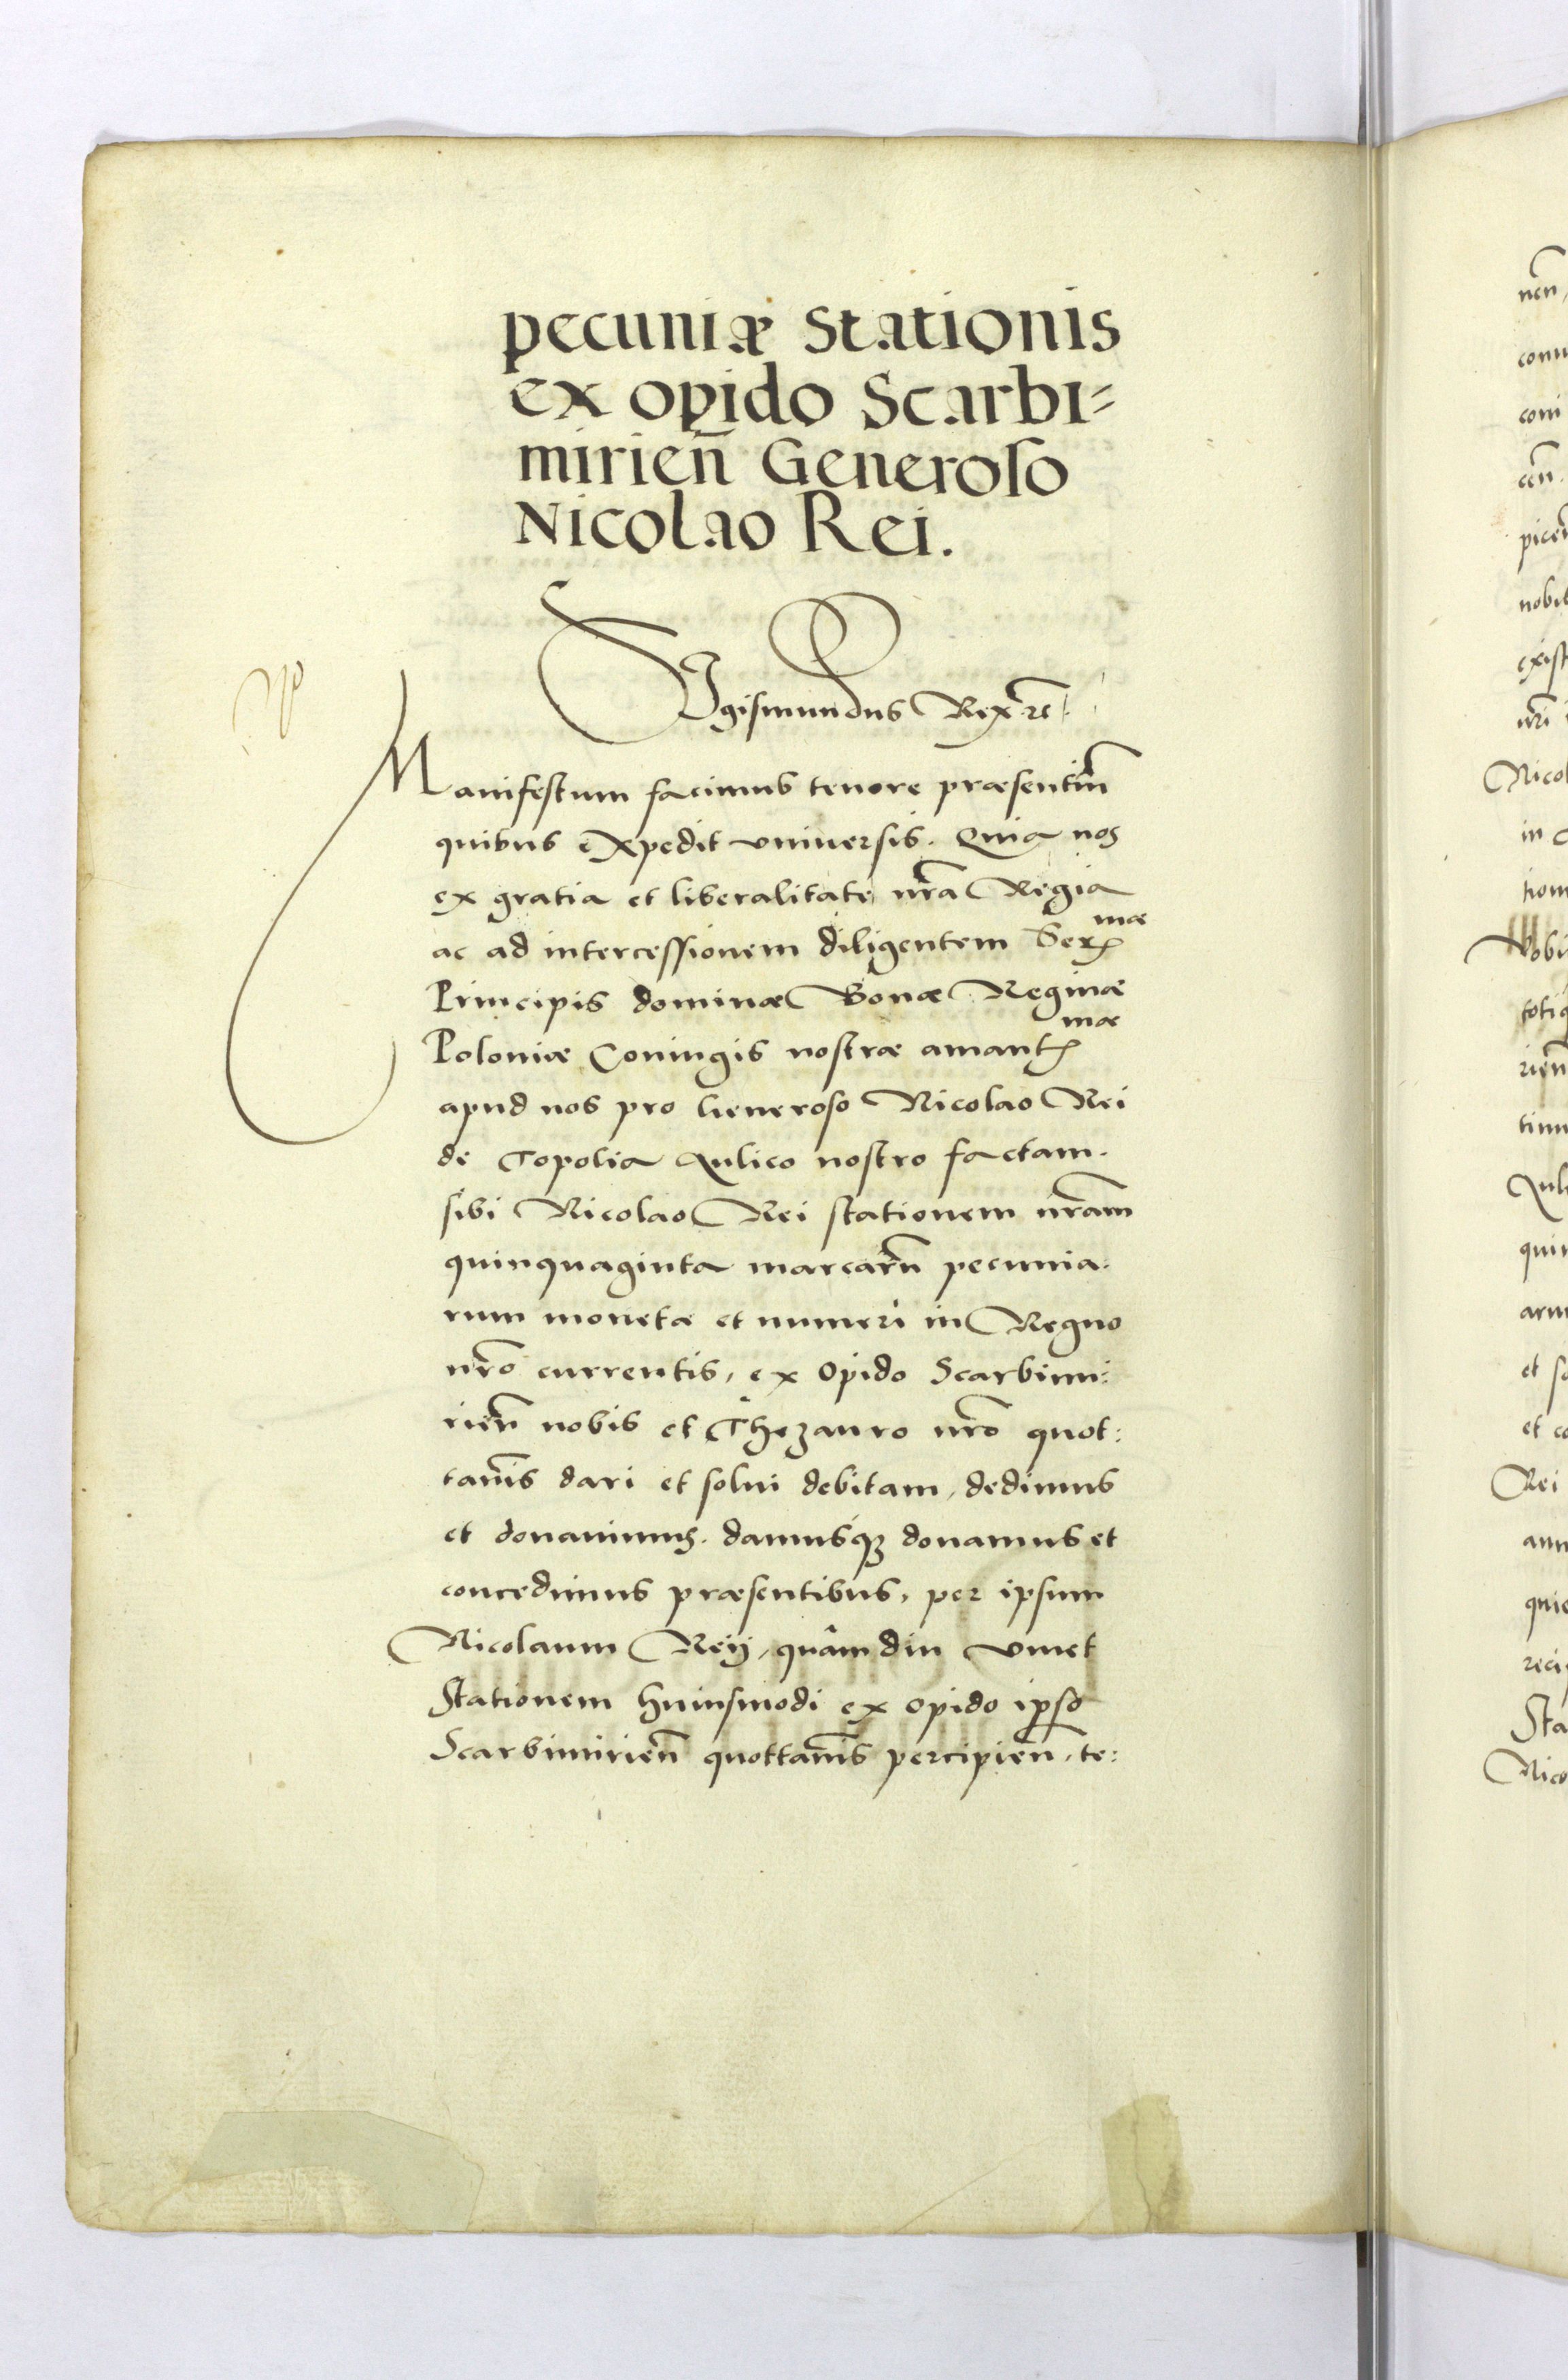 pecuniæ Stationis
ex opido Scarbi=
mirieñ Generoso
Nicolao Rei.
Sigismundus Rex etc.
Manifestum facimus tenore præsentiũm
quibus expedit vniuersis. Quia nos
ex gratia et liberalitate nr̃a Regia
ac ad intercessionem diligentem Serᵐᵃᵉ
Principis dominæ Bonæ Reginæ
Poloniæ Coniugis nostræ amantᵐᵃᵉ
apud nos pro Generoso Nicolao Rei
de Topolia Aulico nostro factam.
sibi Nicolao Rei stationem nr̃am
quinquaginta marcarũ pecunia:
rum monetæ et numeri in Regno
nr̃o currentis, ex Opido Scarbimi:
rieñ nobis et Thezauro nr̃o quot:
tañis dari et solui debitam, dedimus
et donauimus. damusq₃ donamus et
concedimus præsentibus, per ipsum
Nicolaum Reij, quâm diu viuet
Stationem huiusmodi ex opido ipso
Scarbimirieñ quottañis percipieñ, te: